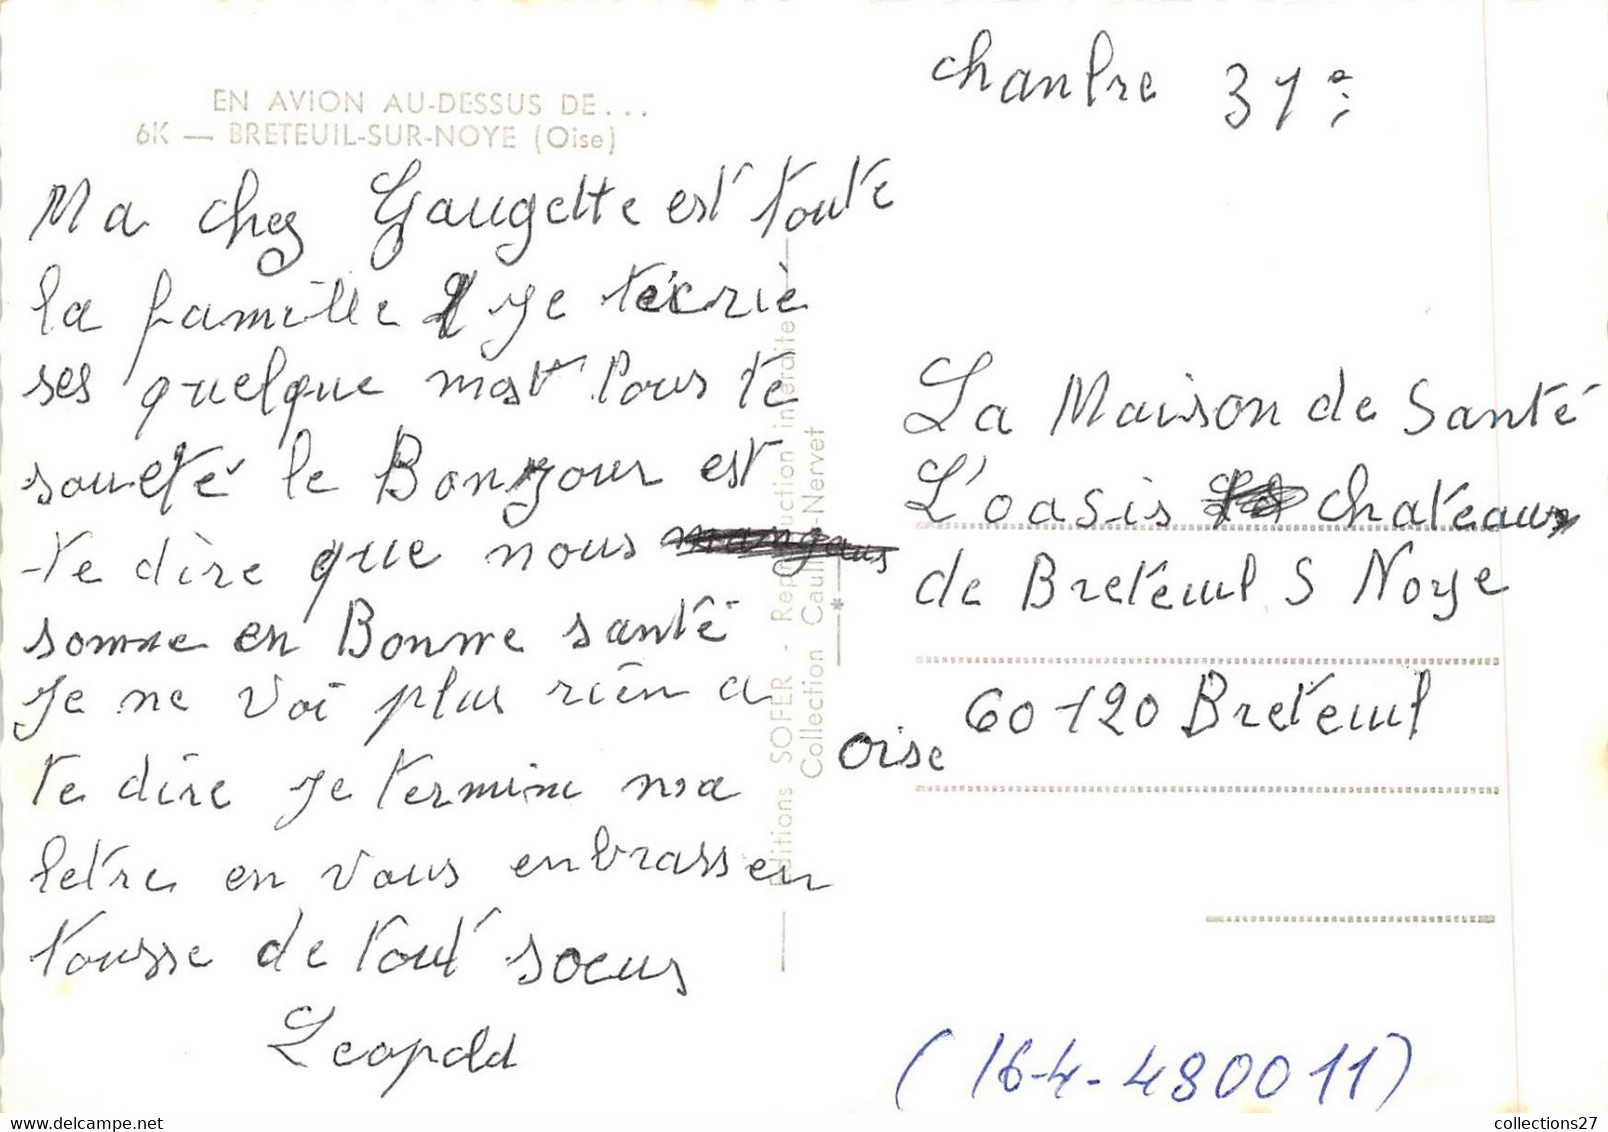 EN AVION AU-DESSUS DE...
6K — BRETEUIL-SUR-NOYE (Oise)
Ma chez Gaugette est toute
la famille Je técrie
ses quelque mot Pour te
soueté le Bonjour est
te dire que nous
somne en Bonne santé
Je ne voi plus rien a
te dire je termine ma
letre en vous enbrassen
tousse de tout soeur
Leopold
Editions SOFER - Reproduction interdite
Collection Caulli-Nervet
chanbre 31
La Maison de Santé
L'oasis chateaux
de Breteuil S Noye
60120 Breteuil
Oise
(16-4-480011)
collections27